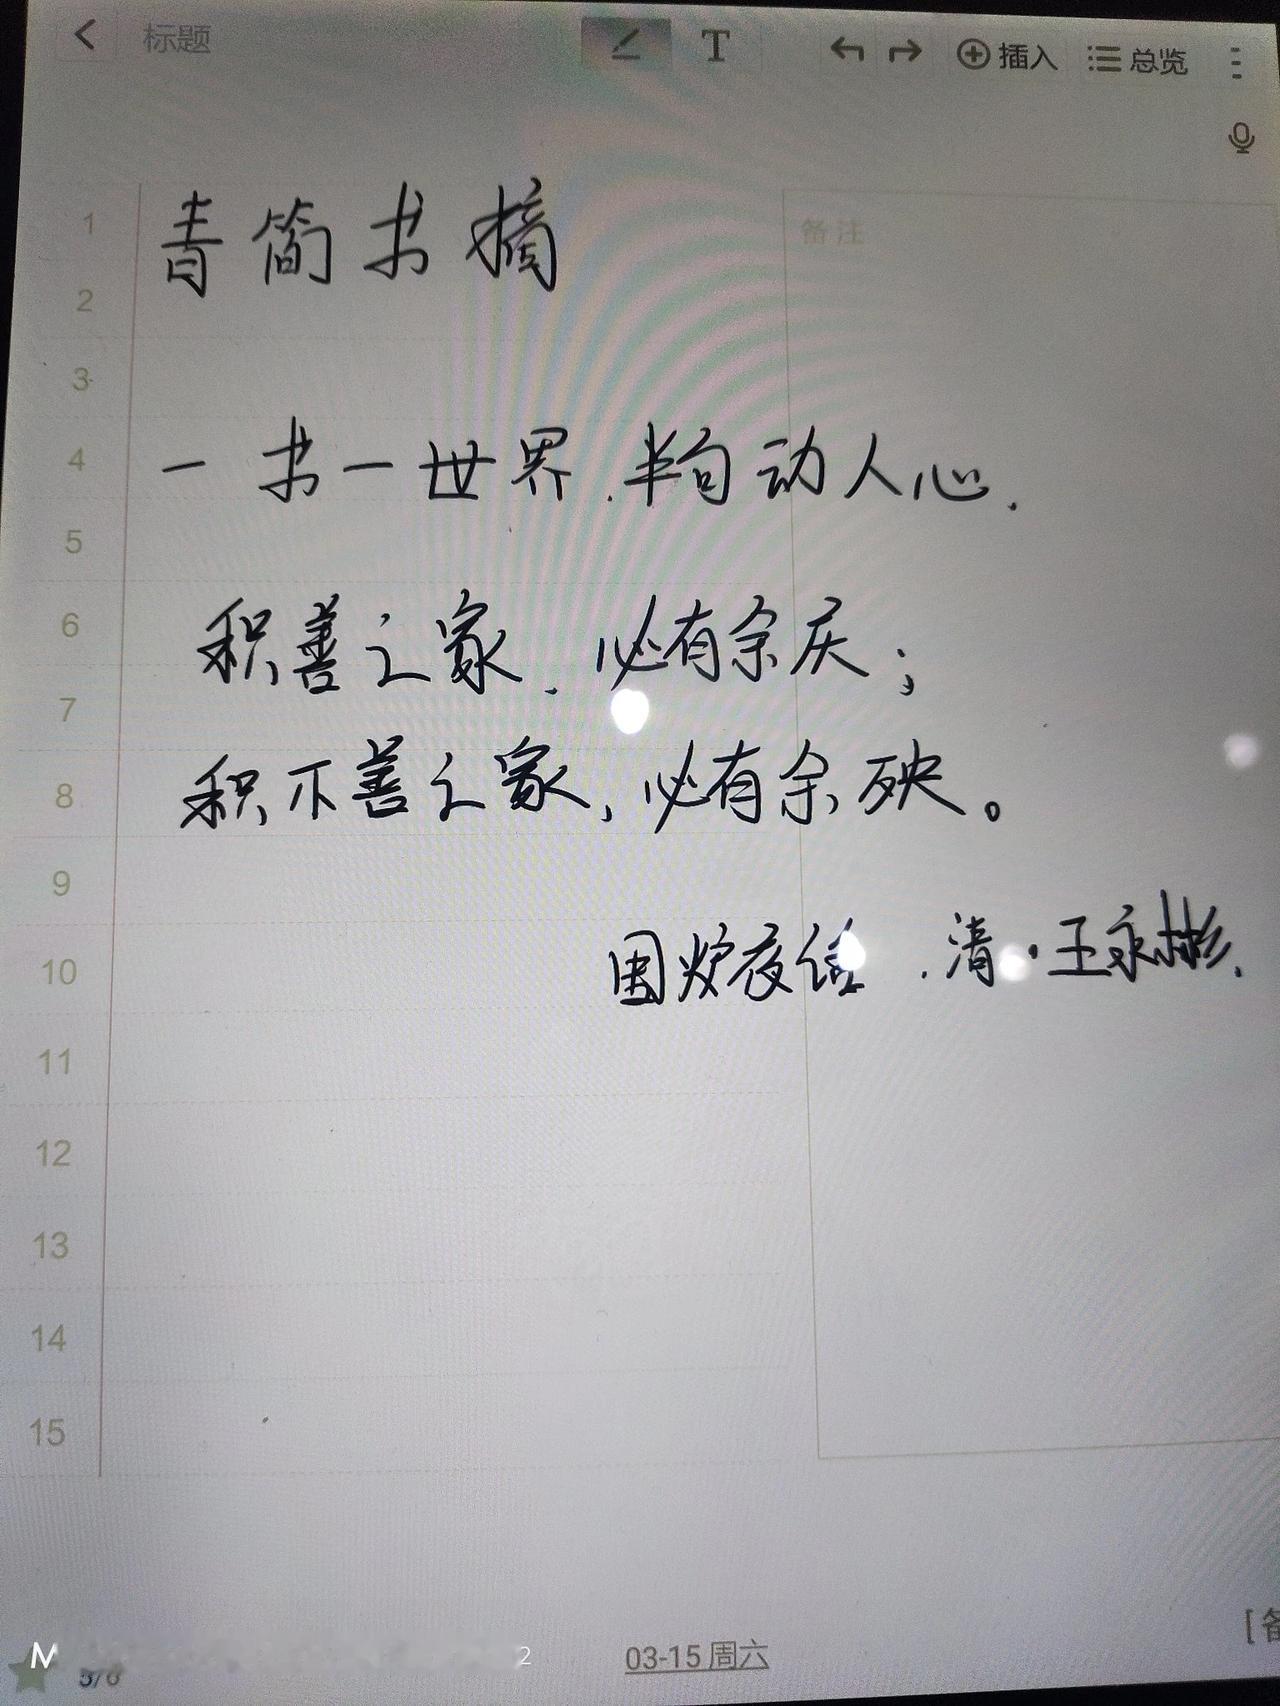 标题 T 插入 总览
备注
1 青简书摘
2
3
4 一书一世界.半句动人心.
5
6 积善之家.必有余庆；
7
8 积不善之家,必有余殃。
9
10 围炉夜话.清·王永彬.
11
12
13
14
15
[备
M 2
03-15 周六